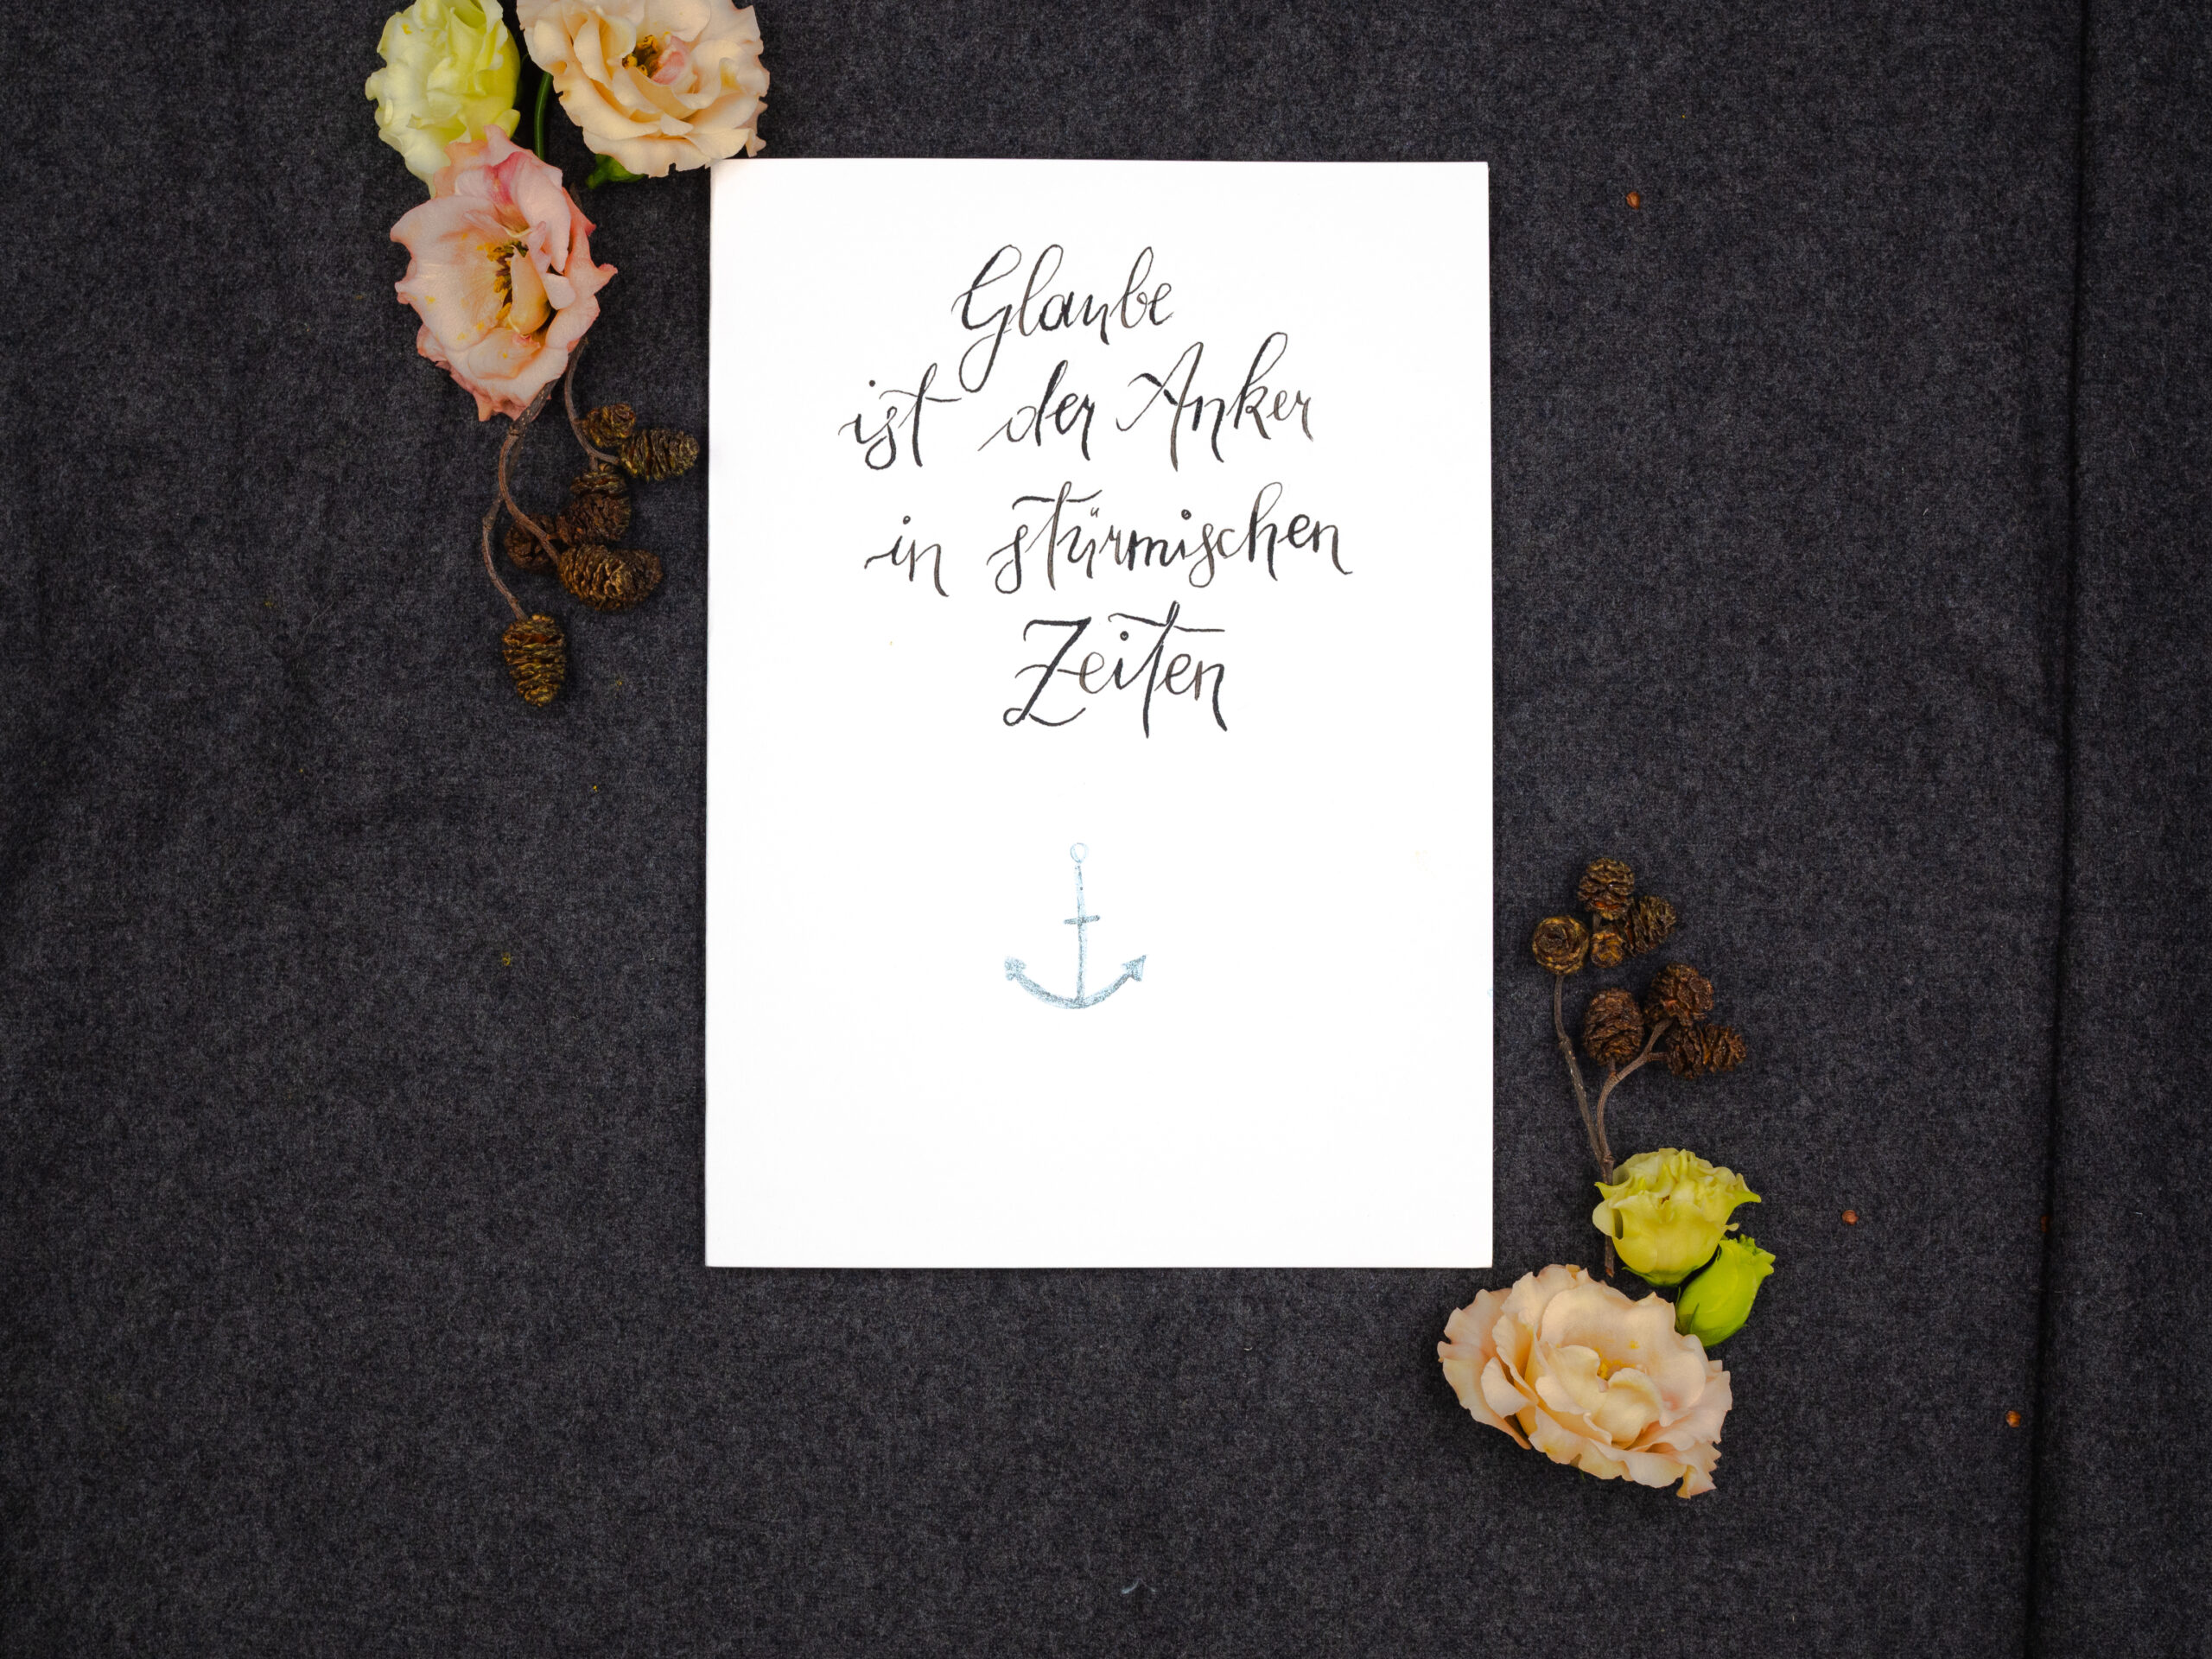 Glaube
ist der Anker
in stürmischen
Zeiten